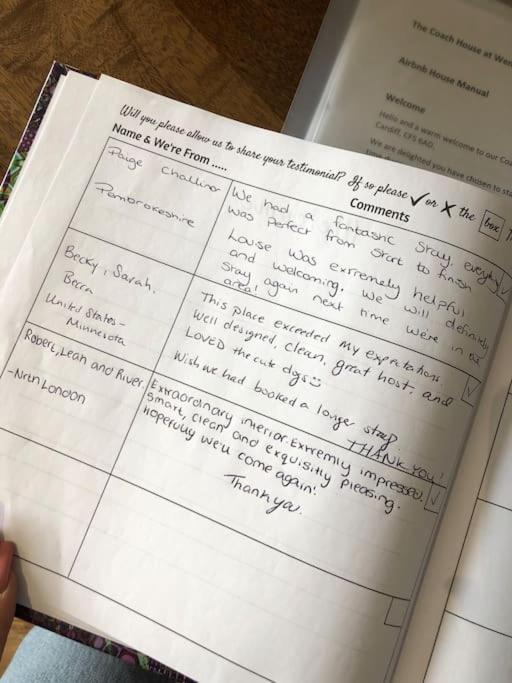 The Coach House at Wen
Airbnb House Manual
Welcome
Hello and a warm welcome to our Coa
Cardiff, CF5 6AD.
We are delighted you have chosen to sta
Will you please allow us to share your testimonial? If so please ✓ or X the box
Name & We're From .....
Comments
Paige Challinor
Pembrokeshire
We had a fantastic stay, everythi
was perfect from start to finish
Louise was extremely helpful
and welcoming. We will definitely
stay again next time we're in the
area!
✓
Becky, Sarah,
Becca
United States -
Minnesota
This place exceeded my expectations.
Well designed, clean, great host, and
LOVED the cute dogs
Wish we had booked a longer stay.
THANK YOU!
✓
Robert, Leah and River.
- Nrth London
Extraordinary interior. Exremly impressed.
Smart, clean and exquisitly pleasing.
Hopefully we'll come again!
Thankya.
✓